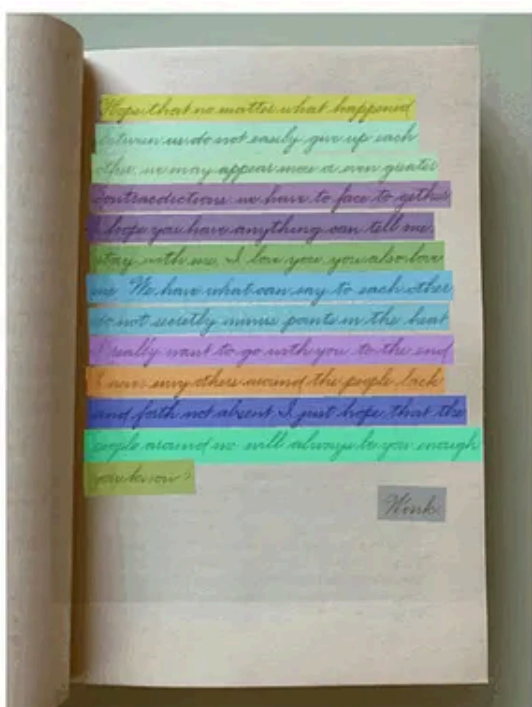 Hope that no matter what happened
between us do not easily give up each
other, we may appear more a even greater
contracdictions we have to face to gether
I hope you have anything can tell me.
stay with me, I love you, you also love
me We have what can say to each other
do not secretly minus points in the heat
I really want to go with you to the end
I never envy others around the people lack
and faith not absent I just hope that the
people around me will always be you enough
you know?
Wink